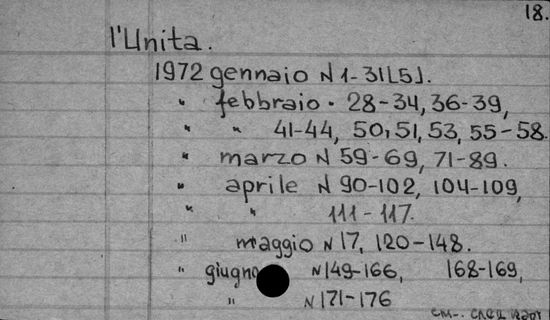 18.
l'Unita.
1972 gennaio N 1-31[5].
" febbraio · 28-34, 36-39,
" " 41-44, 50, 51, 53, 55-58.
" marzo N 59-69, 71-89.
" aprile N 90-102, 104-109,
" " 111-117.
" maggio N 17, 120-148.
" giugno N 149-166, 168-169,
" N 171-176
см.